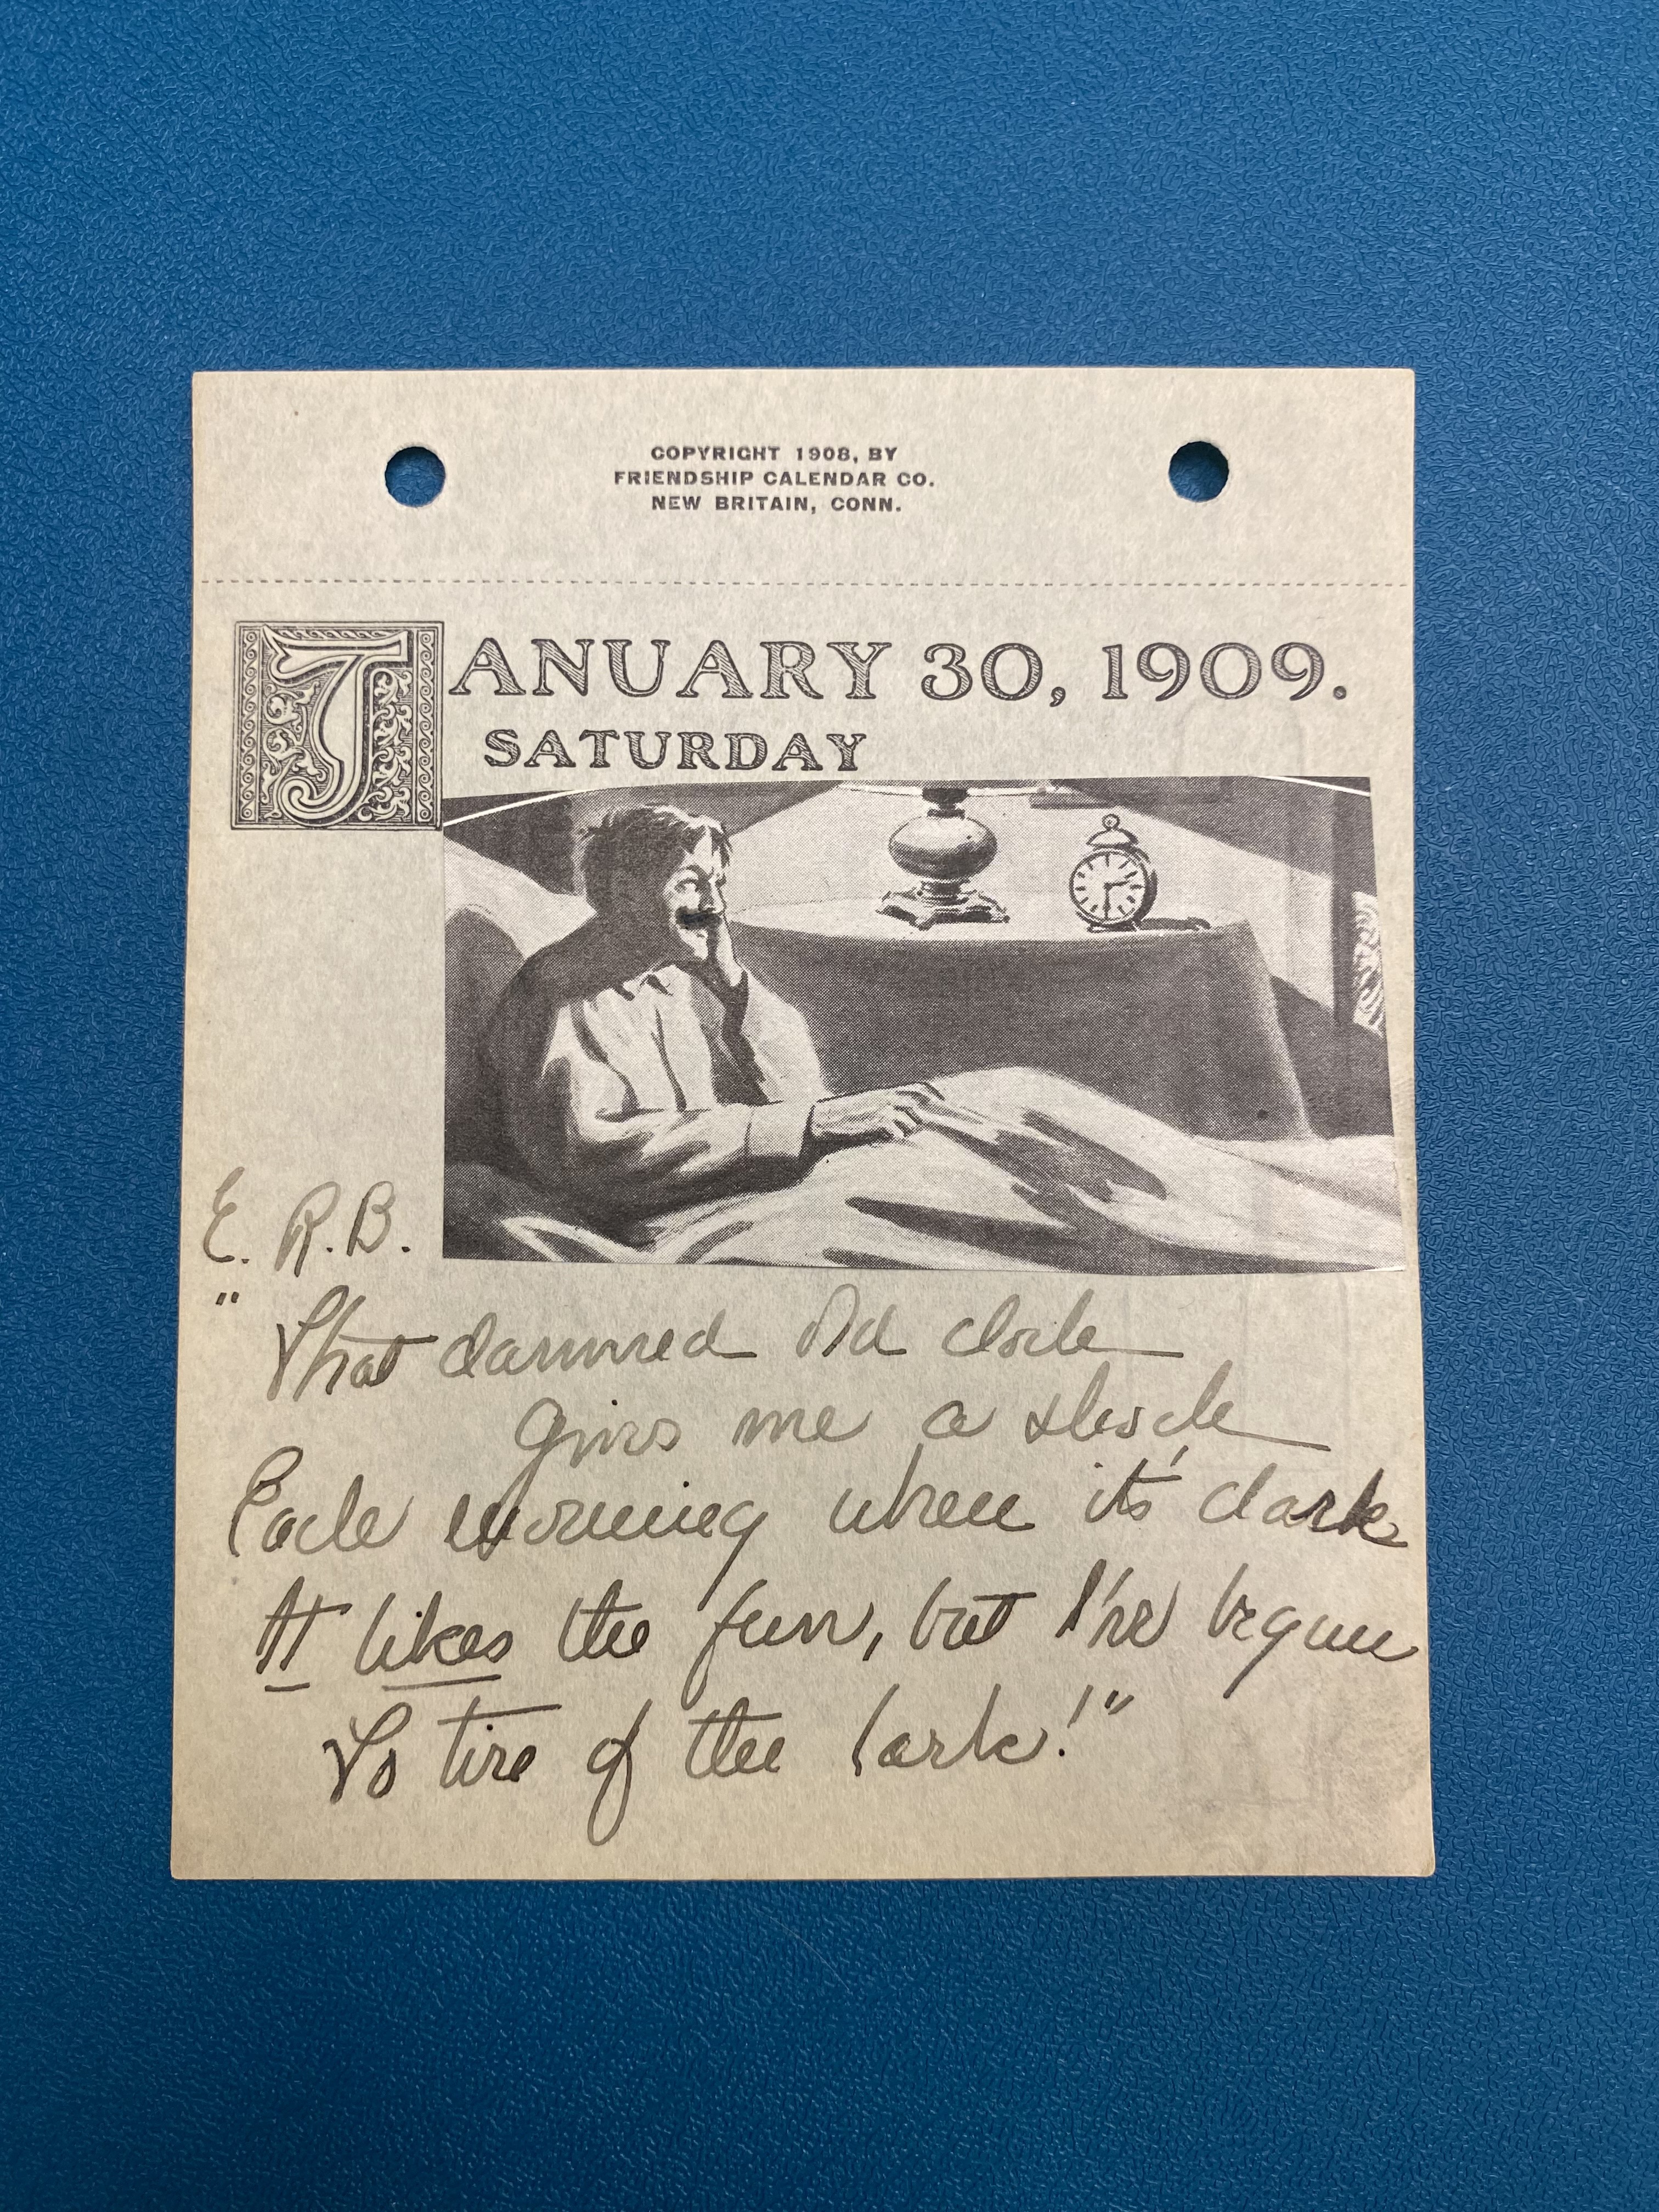 COPYRIGHT 1908, BY
FRIENDSHIP CALENDAR CO.
NEW BRITAIN, CONN.
JANUARY 30, 1909.
SATURDAY
E. R.B.
"That damned old clock
Gives me a shock
Each morning when it's dark
It likes the fun, but I've begun
To tire of the lark!"